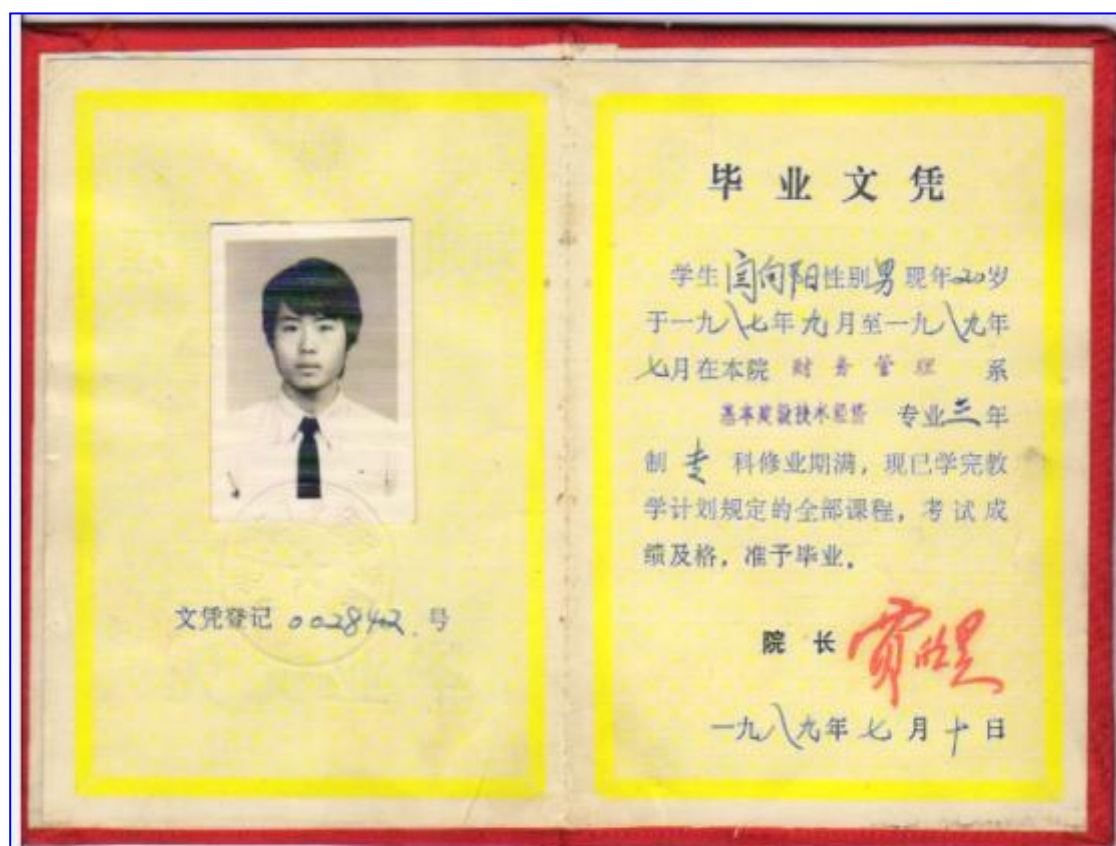 文凭登记 0028402 号
毕业文凭
学生闫向阳性别男现年20岁
于一九八七年九月至一九八九年
七月在本院 财务管理 系
基本建设技术经济 专业三年
制 专 科修业期满，现已学完教
学计划规定的全部课程，考试成
绩及格，准予毕业。
院长
一九八九年七月十日